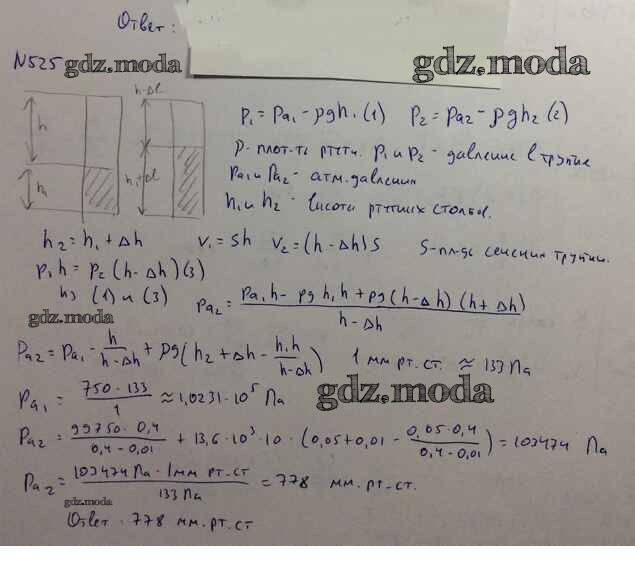 Ответ:
N525 gdz.moda
gdz.moda
h-Δl
h
h₁
h₁+Δl
P₁ = Pa₁ - ρgh₁ (1) P₂ = Pa₂ - ρgh₂ (2)
ρ - плот-ть ртути. P₁ и P₂ - давление в трубке
Pa₁ и Pa₂ - атм. давления
h₁ и h₂ - высоты ртутных столбов.
h₂ = h₁ + Δh V₁ = Sh V₂ = (h - Δh)S S - пл-дь сечения трубки.
P₁h = P₂(h - Δh) (3)
из (1) и (3) Pa₂ = (Pa₁h - ρgh₁h + ρg(h-Δh)(h+Δh)) / (h-Δh)
gdz.moda
Pa₂ = Pa₁ · h/(h-Δh) + ρg(h₂ + Δh - h·h/(h-Δh)) 1 мм рт. ст. ≈ 133 Па
gdz.moda
Pa₁ = 750·133/1 ≈ 1,0231·10⁵ Па
Pa₂ = 99750·0,4/(0,4-0,01) + 13,6·10³·10·(0,05+0,01 - 0,05·0,4/(0,4-0,01)) = 103474 Па
Pa₂ = 103474 Па · 1 мм рт.ст/133 Па = 778 мм.рт.ст.
gdz.moda
Ответ. 778 мм.рт.ст